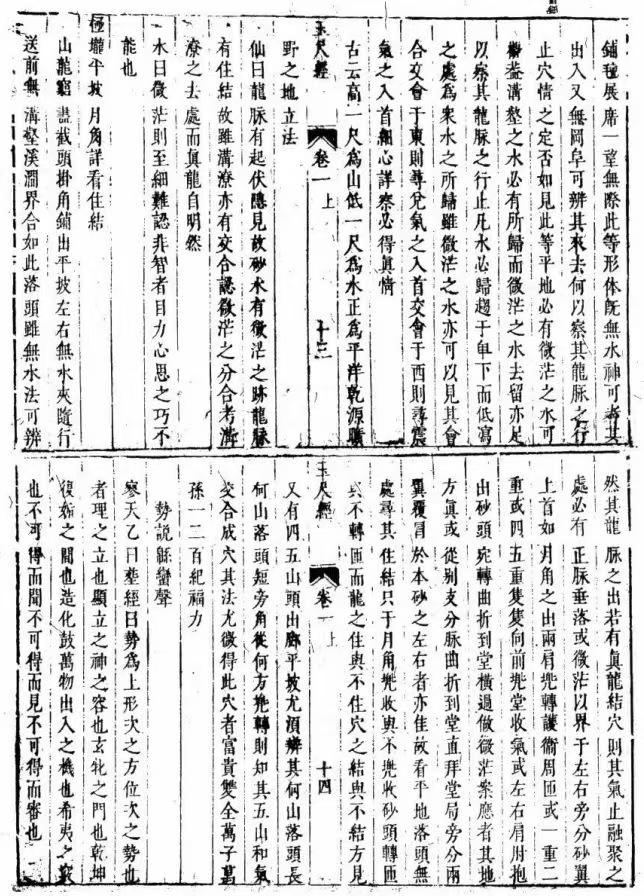 鋪氊展席一望無際此等形体旣無水神可考其
出入又無岡阜可辨其來去何以察其龍脉之行
止穴情之定否如見此等平地必有微茫之水可
辨蓋溝壑之水必有所歸而微茫之水去留亦足
以察其龍脉之行止凡水必歸趨于卑下而低瀉
之處為衆水之所歸雖微茫之水亦可以見其會
合交會于東則尋兊氣之入首交會于西則尋震
氣之入首細心詳察必得眞情
古云高一尺為山低一尺為水正為平洋乾源曠
玉尺經 卷一 上 十三
野之地立法
仙曰龍脉有起伏隱見故砂水有微茫之跡龍脉
有住結故雖溝潦亦有交合認微茫之分合考溝
潦之去處而眞龍自明然
水曰微茫則至細難認非智者目力心思之巧不
能也
極隴平坡月角詳看住結
山龍窮盡截頭掛角鋪出平坡左右無水夾隨行
送前無溝壑溪澗界合如此落頭雖無水法可辨
然其龍脉之出若有眞龍結穴則其氣止融聚之
處必有正脉垂落或微茫以界于左右旁分砂翼
上首如月角之出兩肩兠轉護衞周匝或一重二
重或四五重隻隻向前兠堂收氣或左右肩肘抱
出砂頭宛轉曲折到堂橫過做微茫案應者其地
方眞或從别支分脉曲折到堂直拜堂局旁分兩
翼覆冒於本砂之左右者亦佳故看平地落頭無
處尋其住結只于月角兠收與不兠收砂頭轉匝
與不轉匝而龍之住與不住穴之結與不結方見
玉尺經 卷一 上 十四
又有四五山頭出廊平坡尤須辨其何山落頭長
何山落頭短旁角從何方兠轉則知其五山和氣
交合成穴其法尤微得此穴者富貴雙全萬子萬
孫一二百紀福力
勢說
寥天乙曰塟經曰勢為上形次之方位次之勢也
者理之立也顯立之神之容也玄牝之門也乾坤
復姤之間也造化鼓萬物出入之機也希夷之竅
也不可得而聞不可得而見不可得而審也